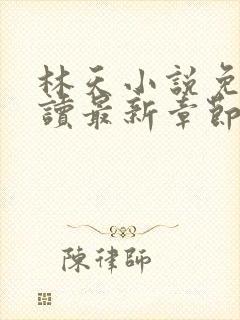 林天小説免
讀最新章節
陳律師